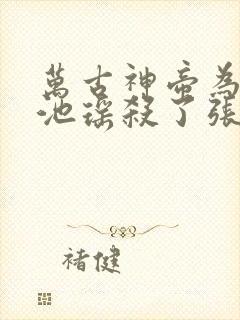 萬古神帝為
池瑤殺了張
褚健